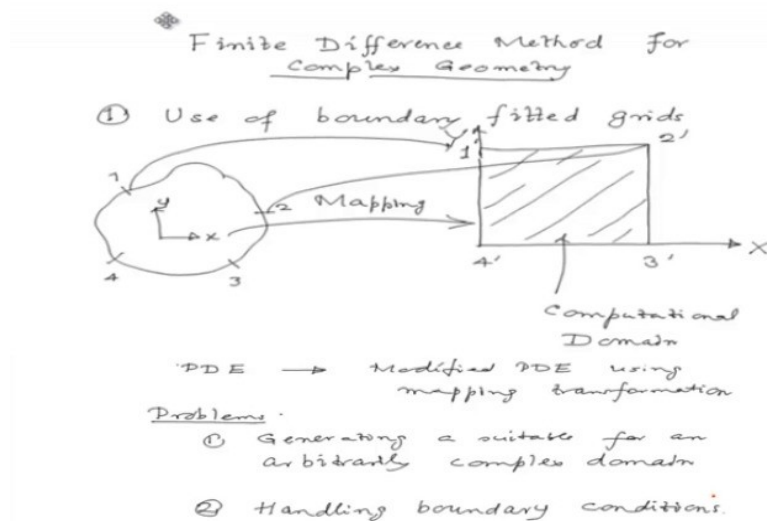 Finite Difference Method for
Complex Geometry
① Use of boundary fitted grids
Y
1'
2'
1
y
2
Mapping
x
4
3
4'
3'
X
Computational
Domain
PDE → Modified PDE using
mapping transformation
Problems.
① Generating a suitable for an
arbitrarily complex domain
② Handling boundary conditions.